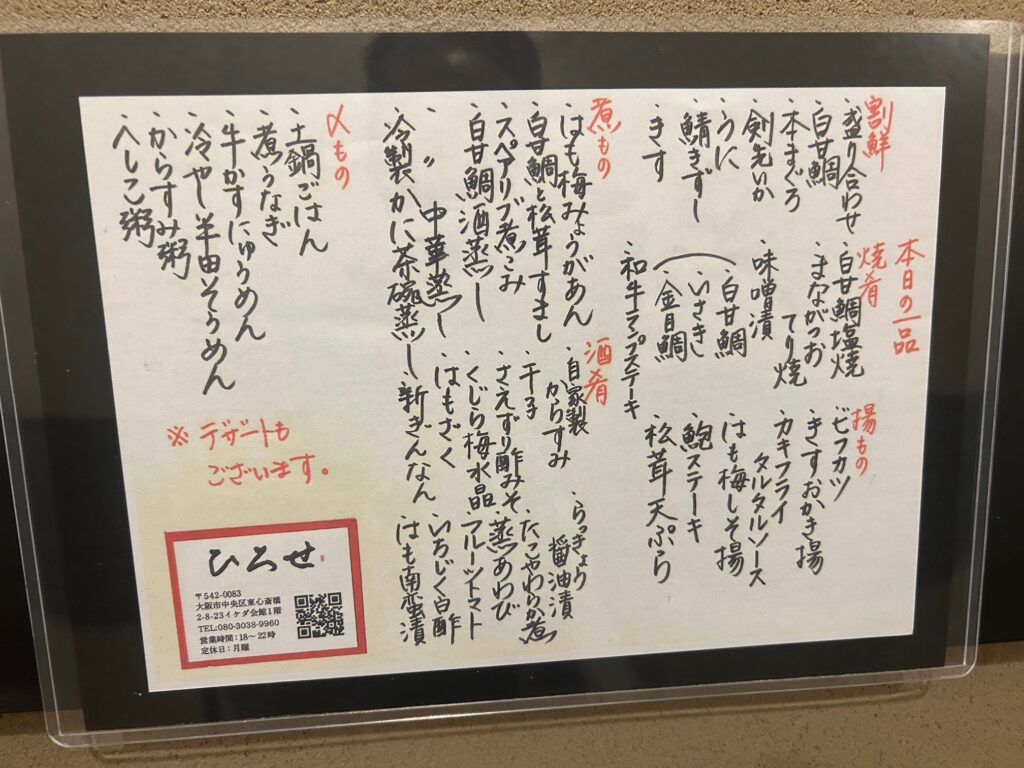 本日の一品
割鮮
・盛り合わせ
・白甘鯛
・本まぐろ
・剣先いか
・うに
・鯖きずし
・きす
焼肴
・白甘鯛塩焼
・まながつお
てり焼
・味噌漬
・白甘鯛
・いさき
・金目鯛
・和牛ランプステーキ
揚もの
・ビフカツ
・きすおかき揚
・カキフライ
タルタルソース
・はも梅しそ揚
・鮑ステーキ
・松茸天ぷら
煮もの
・はも梅みょうがあん
・白甘鯛と松茸すまし
・スペアリブ煮こみ
・白甘鯛酒蒸し
・〃 中華蒸し
・冷製かに茶碗蒸し
酒肴
・自家製
からすみ
・干子
・さえずり酢みそ
・くじら梅水晶
・はもざく
・新ぎんなん
・らっきょう
醤油漬
・たこやわらか煮
・蒸あわび
・フルーツトマト
・いちじく白酢
・はも南蛮漬
〆もの
・土鍋ごはん
・煮うなぎ
・牛かすにゅうめん
・冷やし半田そうめん
・からすみ粥
・へしこ粥
※デザートも
ございます。
ひろせ
〒542-0083
大阪市中央区東心斎橋
2-8-23イケダ会館1階
TEL:080-3038-9960
営業時間:18〜22時
定休日:月曜